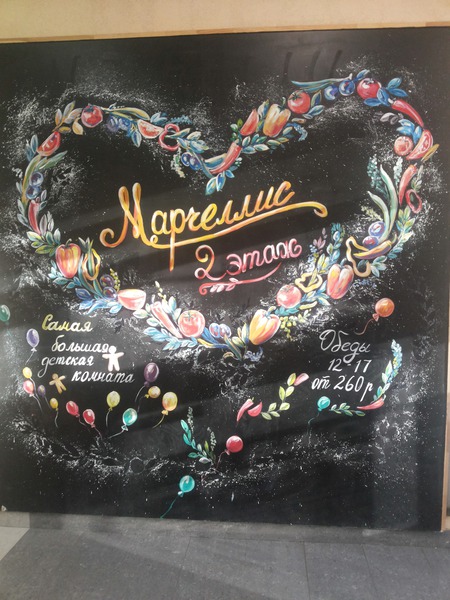 Марчеллис
2 этаж
Самая
большая
детская
комната
Обеды
12-17
от 260 р